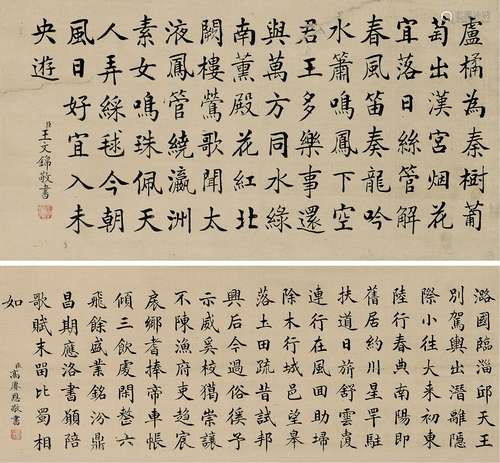 盧橘為秦樹葡
萄出漢宮烟花
宜落日絲管解
春風笛奏龍吟
水簫鳴鳳下空
君王多樂事還
與萬方同水綠
南薰殿花紅北
闕樓鶯歌聞太
液鳳管繞瀛洲
素女鳴珠佩天
人弄綵毬今朝
風日好宜入未
央遊
臣王文錦敬書
潞國臨淄邸天王
別駕輿出潛離隱
際小往大來初東
陸行春典南陽即
舊居約川星罕駐
扶道日旂舒雲
連行在風回助埽
除木行城
落土田疏昔試邦
興后今過俗徯予
示威校獵崇讓
不陳漁府
鄉耆捧帝車帳
傾三飲處閒整六
飛餘盛業銘汾鼎
昌期應洛書願陪
歌賦末留比蜀相
如
臣高賡恩敬書